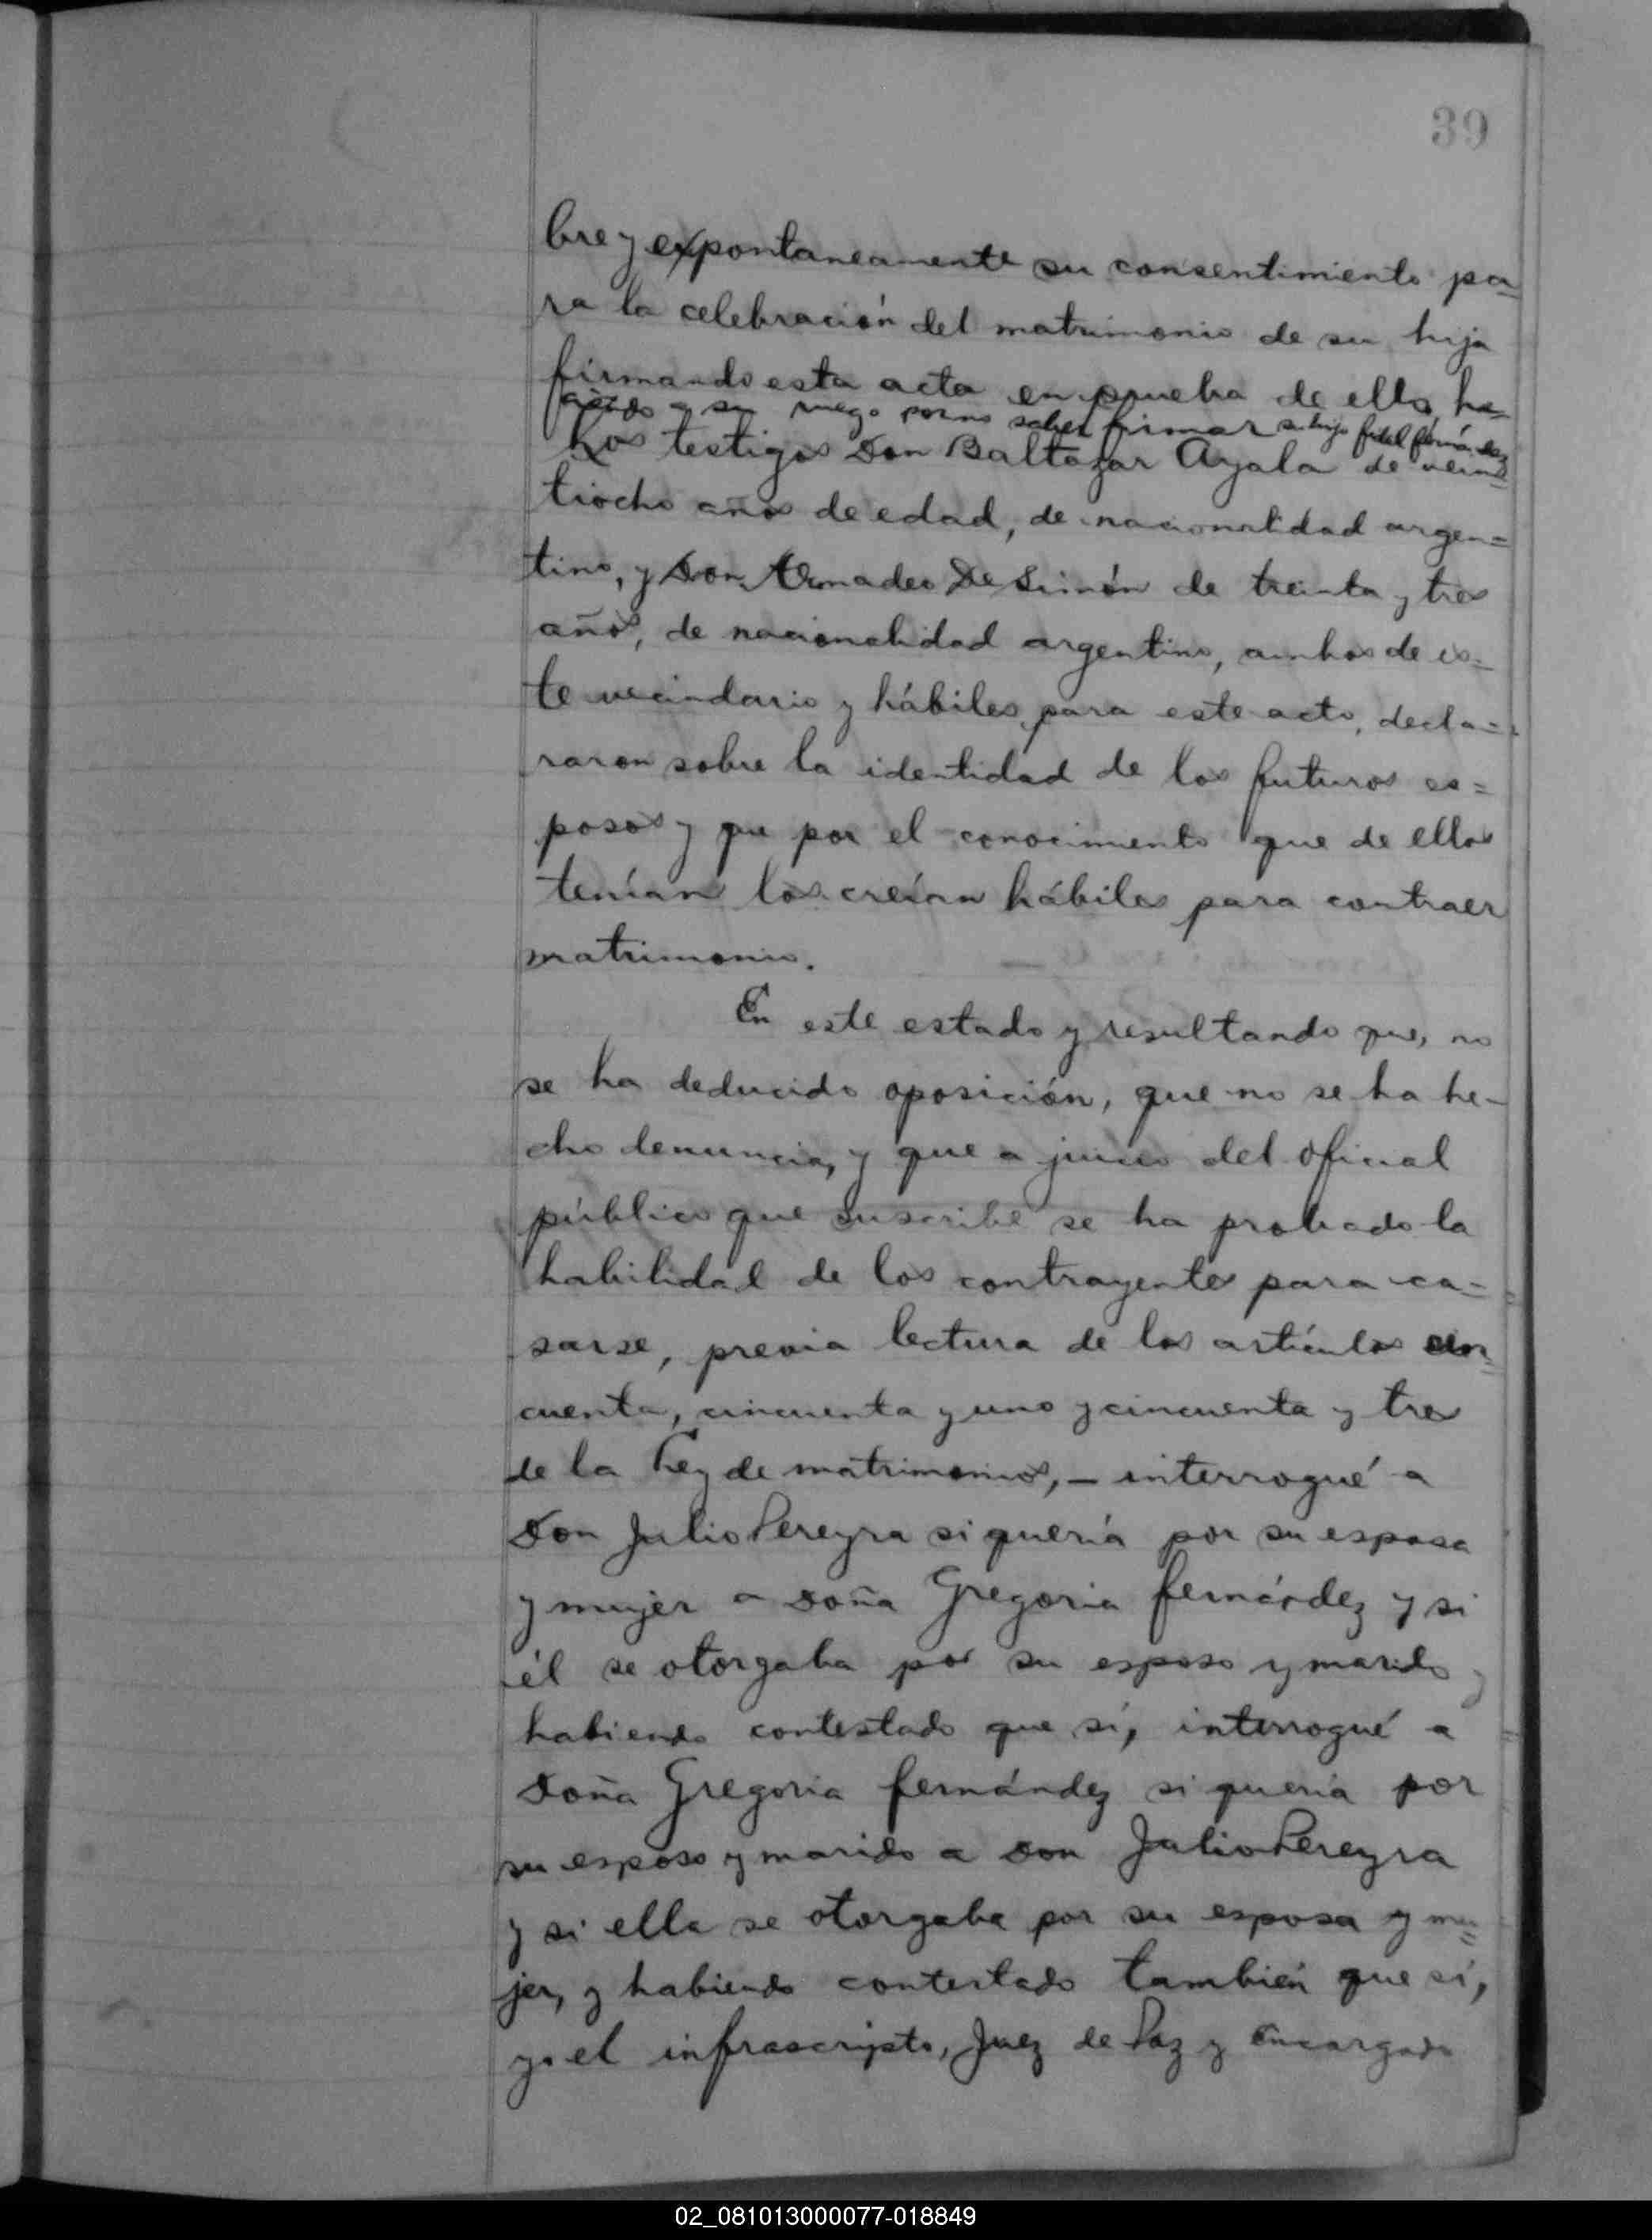 39
bre y expontaneamente su consentimiento pa=
ra la celebración del matrimonio de su hija
firmando esta acta en prueba de ello, ha=
ciendo a su ruego por no saber firmar su hijo fidel fernández
Los testigos Don Baltazar Ayala de vein=
tiocho años de edad, de nacionalidad argen=
tino, y Don Amadeo De Simón de treinta y tres
años, de nacionalidad argentino, ambos de es=
te vecindario y hábiles para este acto, decla=
raron sobre la identidad de los futuros es=
posos y que por el conocimiento que de ellos
tenían los creían hábiles para contraer
matrimonio.
En este estado y resultando que, no
se ha deducido oposición, que no se ha he-
cho denuncia, y que a juicio del oficial
público que suscribe se ha probado la
habilidad de los contrayentes para ca=
sarse, previa lectura de los artículos cin=
cuenta, cincuenta y uno y cincuenta y tres
de la Ley de matrimonios, – interrogué a
Don Julio Pereyra si quería por su esposa
y mujer a Doña Gregoria fernández y si
él se otorgaba por su esposo y marido y
habiendo contestado que sí, interrogué a
Doña Gregoria fernández si quería por
su esposo y marido a Don Julio Pereyra
y si ella se otorgaba por su esposa y mu=
jer, y habiendo contestado también que sí,
yo el infrascripto, Juez de Paz y Encargado
02_081013000077-018849